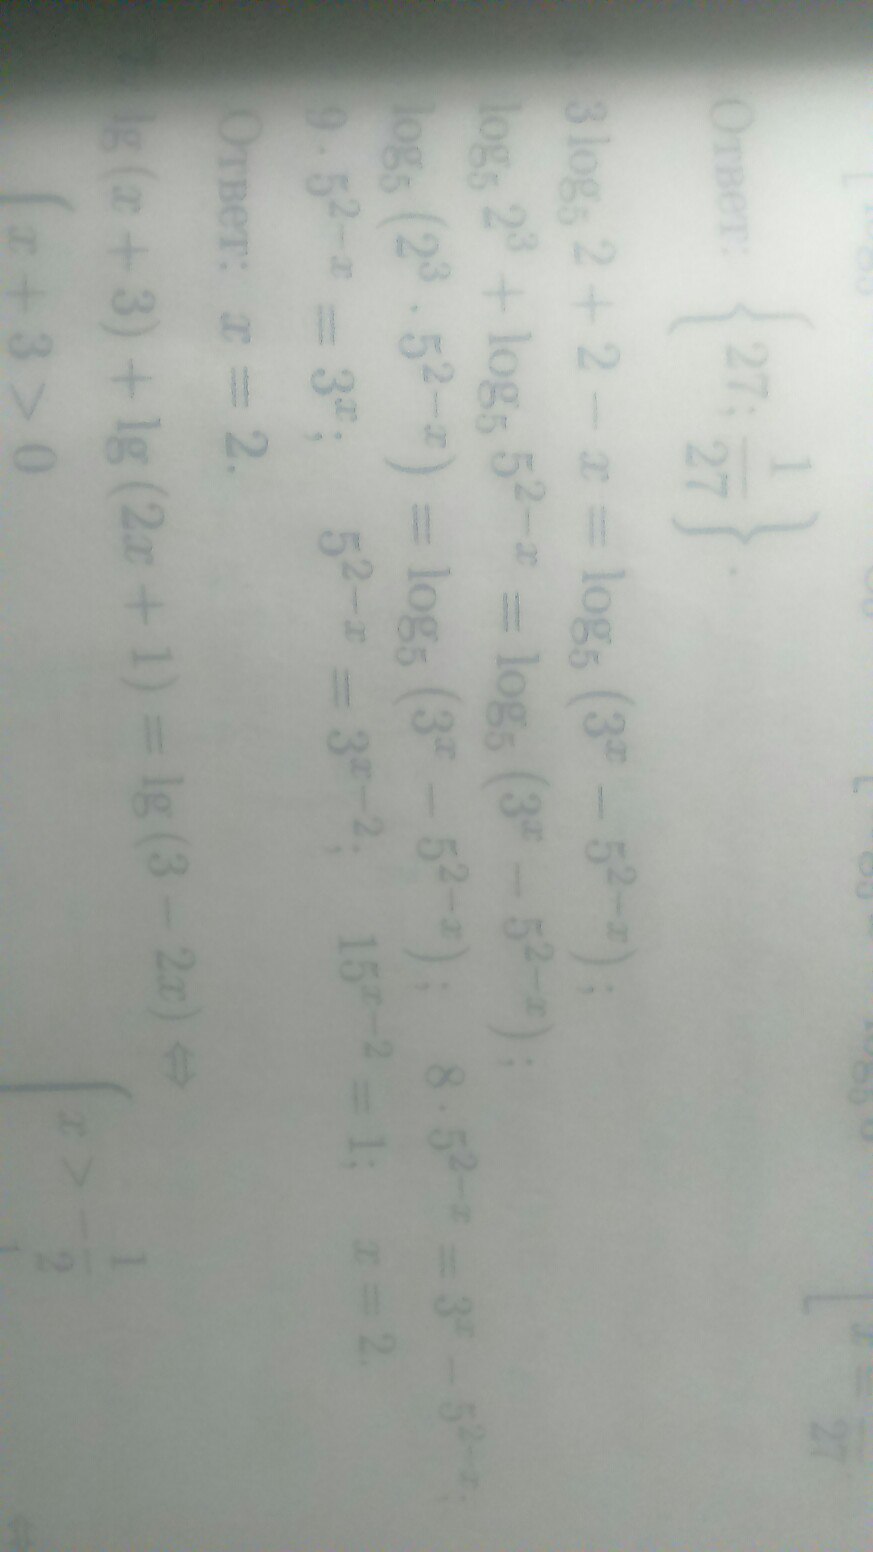 Ответ: { 27; 1/27 }.
3 log₅ 2 + 2 − x = log₅ (3ˣ − 5²⁻ˣ);
log₅ 2³ + log₅ 5²⁻ˣ = log₅ (3ˣ − 5²⁻ˣ);
log₅ (2³ · 5²⁻ˣ) = log₅ (3ˣ − 5²⁻ˣ); 8 · 5²⁻ˣ = 3ˣ − 5²⁻ˣ;
9 · 5²⁻ˣ = 3ˣ; 5²⁻ˣ = 3ˣ⁻²; 15ˣ⁻² = 1; x = 2.
Ответ: x = 2.
lg (x + 3) + lg (2x + 1) = lg (3 − 2x) ⇔
{ x + 3 > 0 { x > −1/2